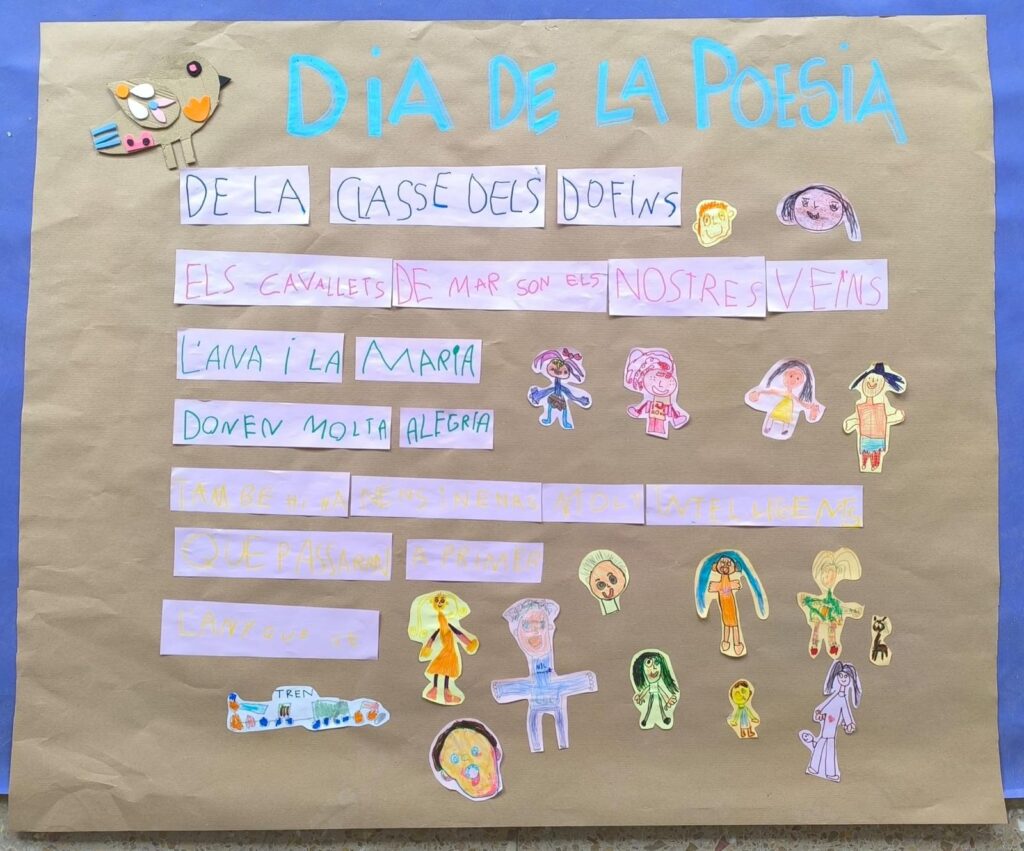 DIA DE LA POESIA
DE LA CLASSE DELS DOFINS
ELS CAVALLETS DE MAR SON ELS NOSTRES VEÏNS
L'ANA I LA MARIA
DONEN MOLTA ALEGRIA
TAMBE HI HA NENS I NENAS MOLT INTEL·LIGENS
QUE PASSARAN A PRIMER
L'ANY QUE VE
TREN